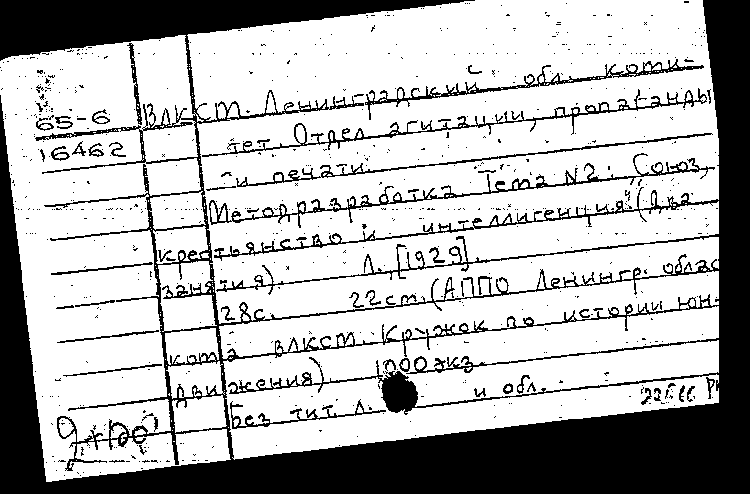 65-6
16462
ВЛКСМ. Ленинградский обл. коми-
тет. Отдел агитации, пропаганды
и печати.
Методразработка Тема N2: Союз,
крестьянство и интеллигенция (Два
занятия). Л., [1929].
28с. 22см. (АППО Ленингр. облас
кома ВЛКСМ. Кружок по истории юн-
движения) 1000 экз.
Без тит. л. и обл.